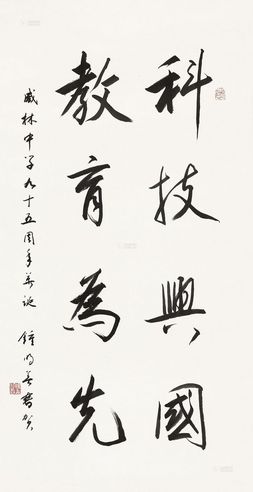 科技興國
教育為先
咸林中学九十五周年華诞
鍾明善書贺